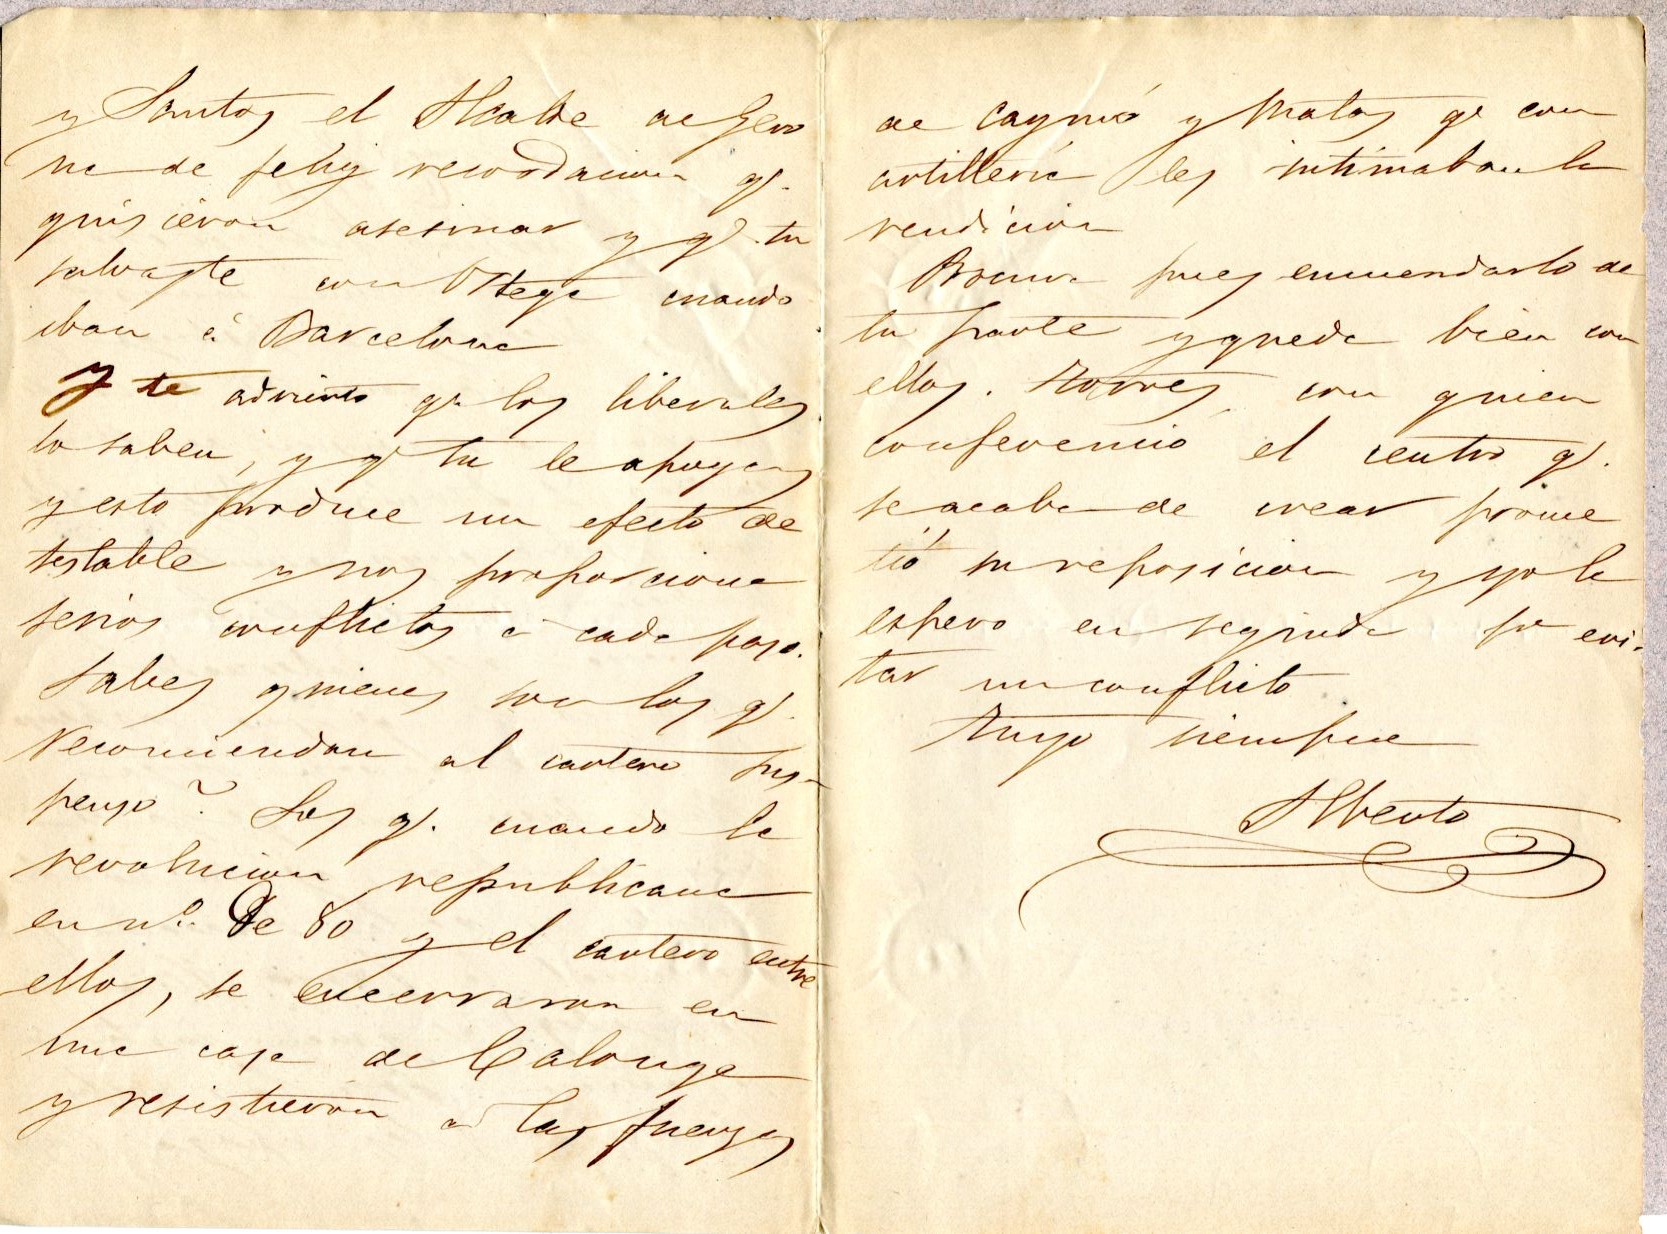 y Santos el Alcalde de Gero
na de feliz recordacion q.
quisieron asesinar y q. tu
salvaste con Ortega cuando
iban á Barcelona
Y te advierto q. los liberales
lo saben, y q. tu le apoyas
y esto produce un efecto de
testable y nos proporciona
serios conflictos á cada paso.
Sabes quienes son los q.
recomiendan al cartero sus-
penso? Los q. cuando la
revolucion republicana
en nº. De 80 y el cartero entre
ellos, se encerraron en
una casa de Calonge
y resistieron á las fuerzas
de Caymó y Matas q. con
artilleria les intimaban la
rendicion
pues enmendarlo de
tu parte y queda bien con
ellos. Torres, con quien
conferenció el centro q.
se acaba de crear prome
tió su reposicion y yo la
espero en seguida pr evi-
tar un conflicto
Tuyo siempre
Alberto